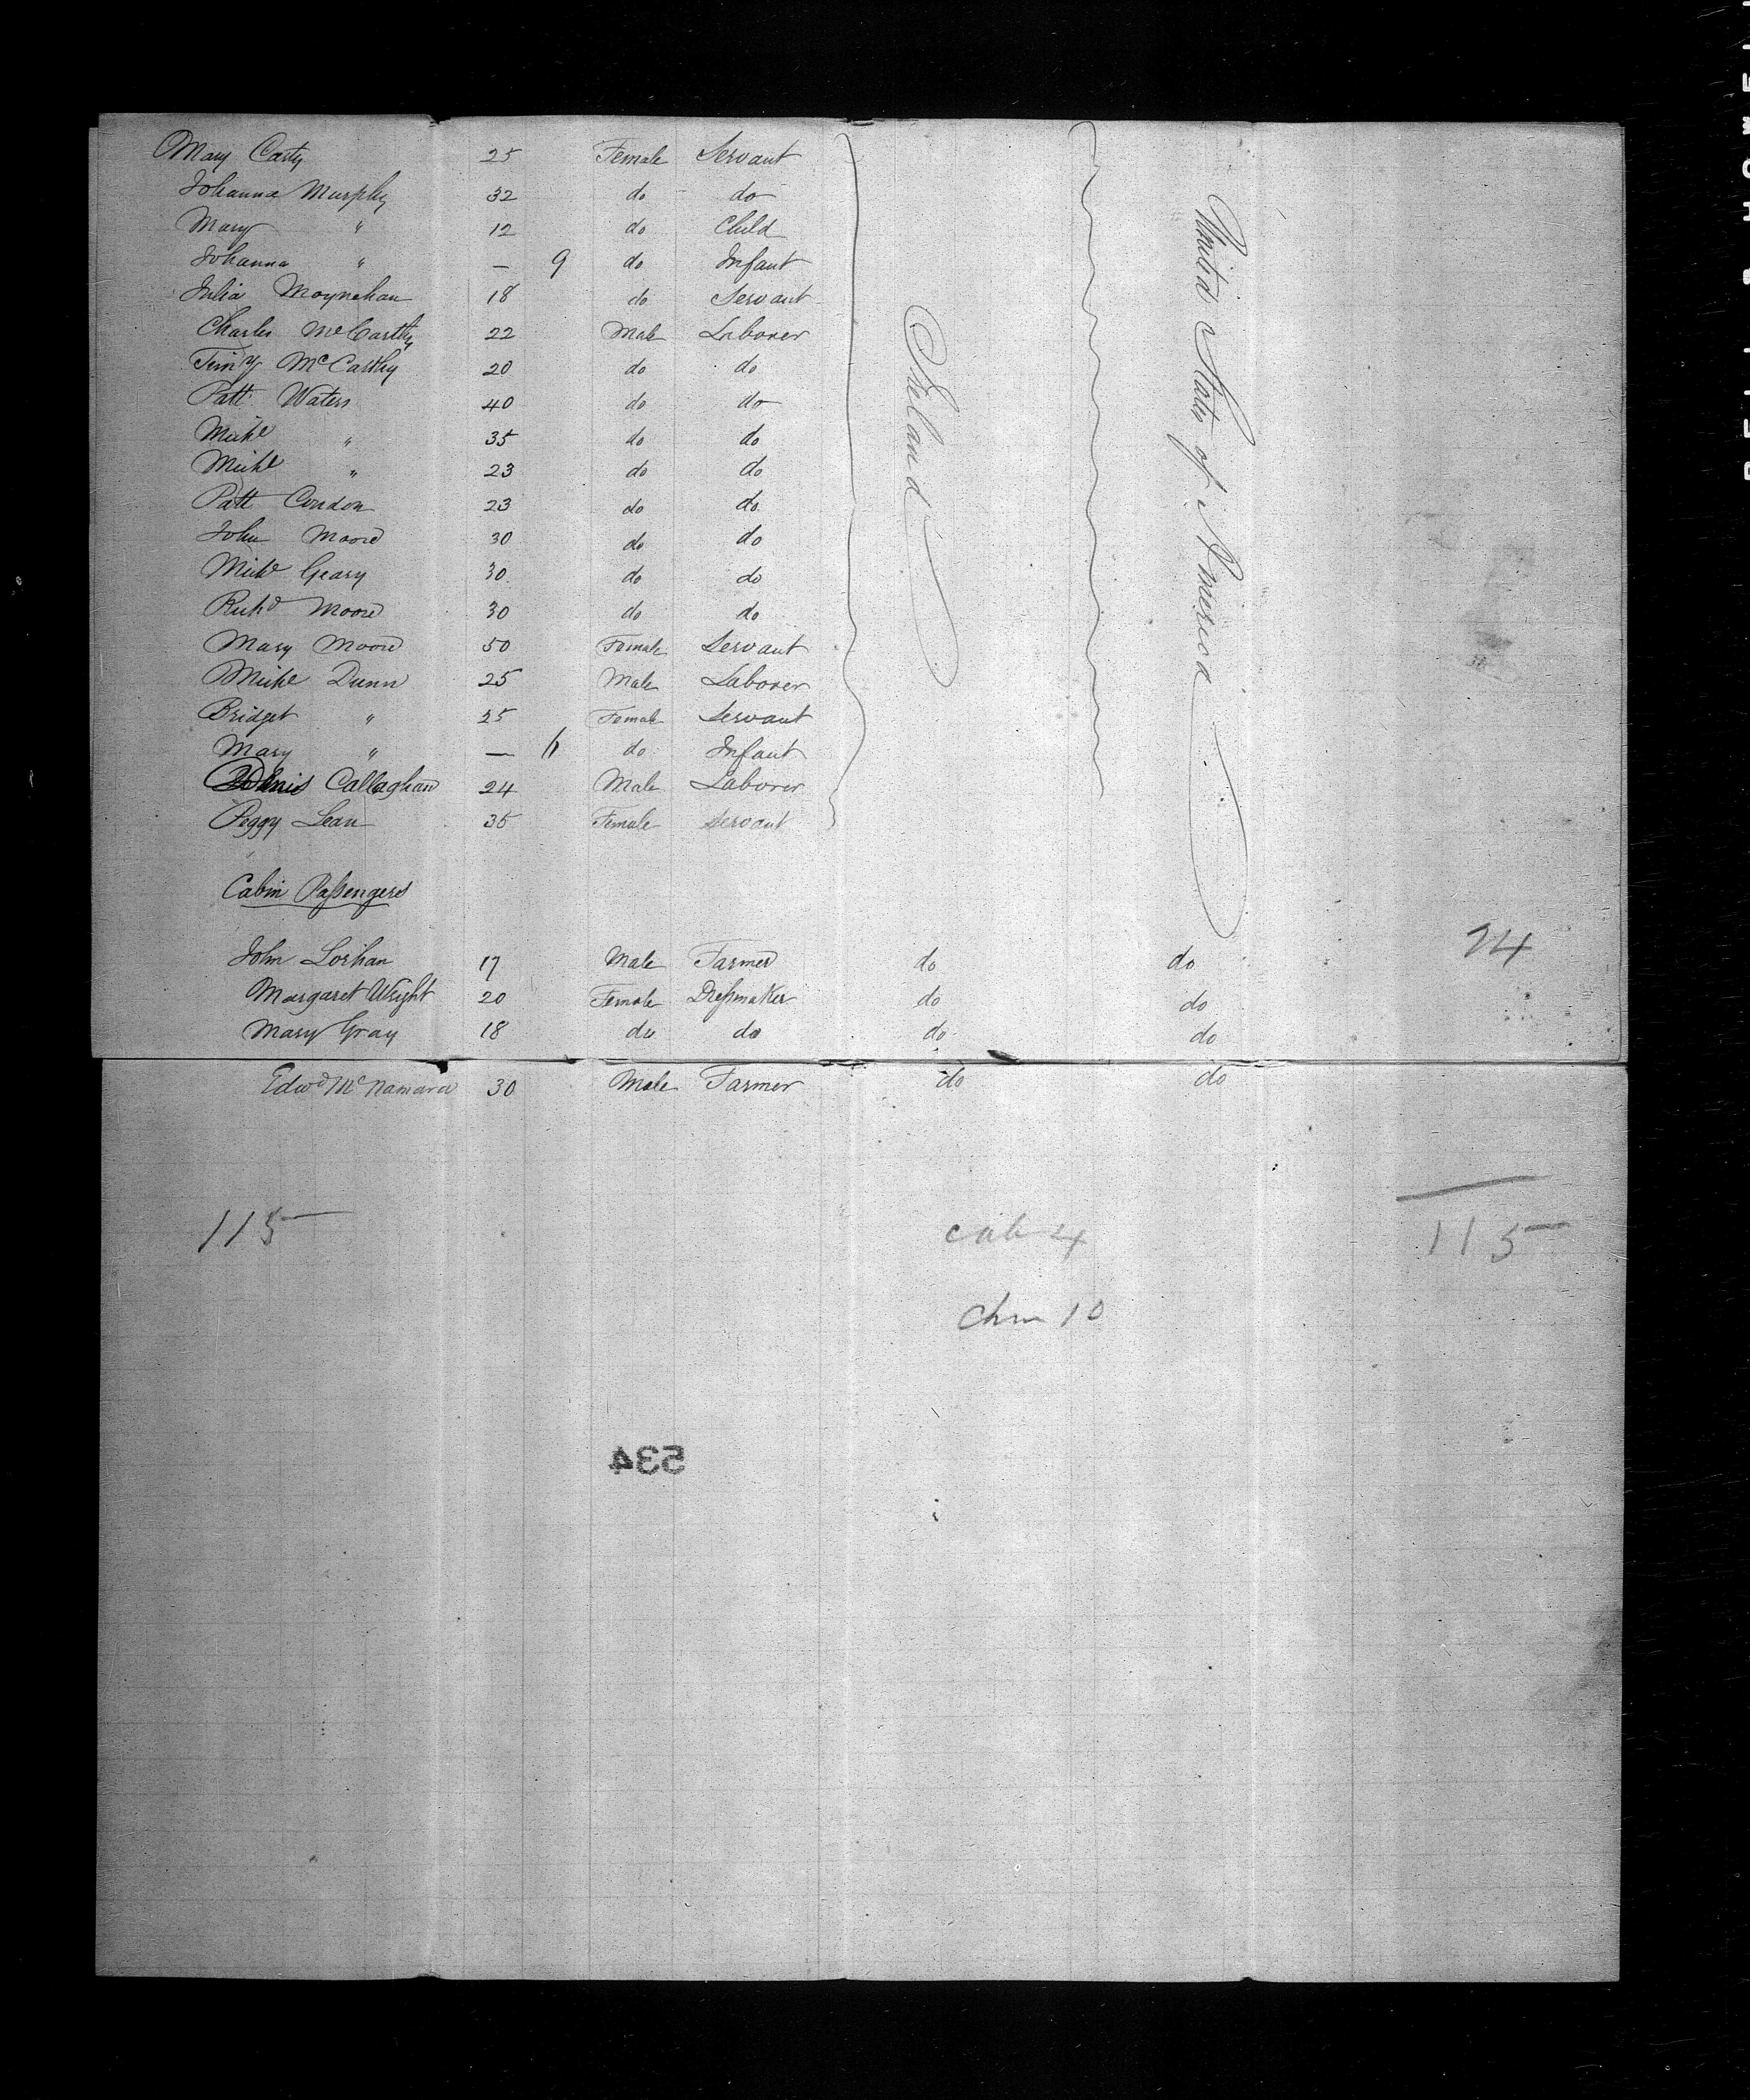 Mary Carty 25 Female Servant
Johanna Murphy 32 do do
Mary " 12 do Child
Johanna " — 9 do Infant
Julia Moynehan 18 do Servant
Charles McCarthy 22 Male Laborer
Timy McCarthy 20 do do
Patt Waters 40 do do
Michl " 35 do do
Michl " 23 do do
Patt Condon 23 do do
John Moore 30 do do
Michl Geary 30 do do
Richd Moore 30 do do
Mary Moore 50 Female Servant
Michl Dunn 25 Male Laborer
Bridget " 25 Female Servant
Mary " — do Infant
Denis Callaghan 24 Male Laborer
Peggy Lean 35 Female Servant
Ireland
United States of America
Cabin Passengers
24
John Lorhan 17 Male Farmer do do
Margaret Wright 20 Female Dressmaker do do
Mary Gray 18 do do do do
Edwd McNamara 30 Male Farmer do do
115 cab 4 115
Chn 10
534